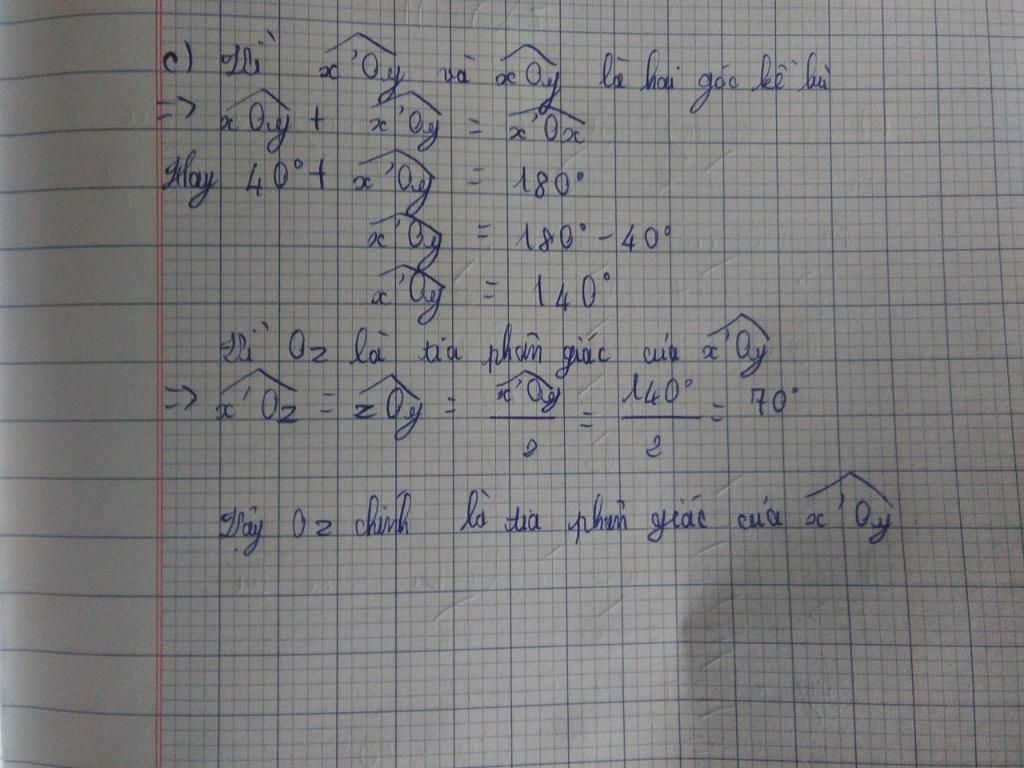 c) Vì x'Oy và xOy là hai góc kề bù
=> xOy + x'Oy = x'Ox
Hay 40° + x'Oy = 180°
x'Oy = 180° - 40°
x'Oy = 140°
Vì Oz là tia phân giác của x'Oy
=> x'Oz = zOy = x'Oy / 2 = 140° / 2 = 70°
Vậy Oz chính là tia phân giác của x'Oy